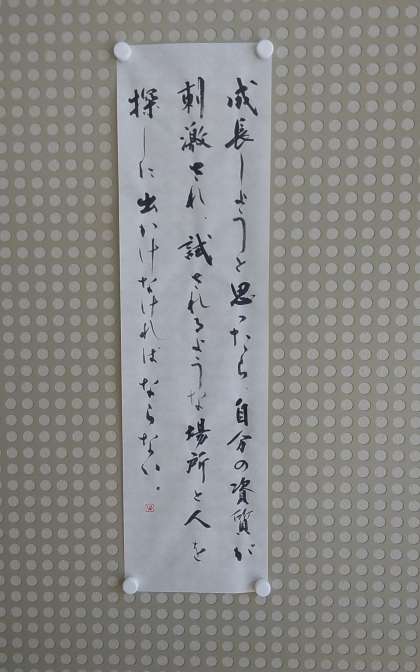 成長しようと思ったら、自分の資質が
刺激され、試されるような場所と人を
探しに出かけなければならない。